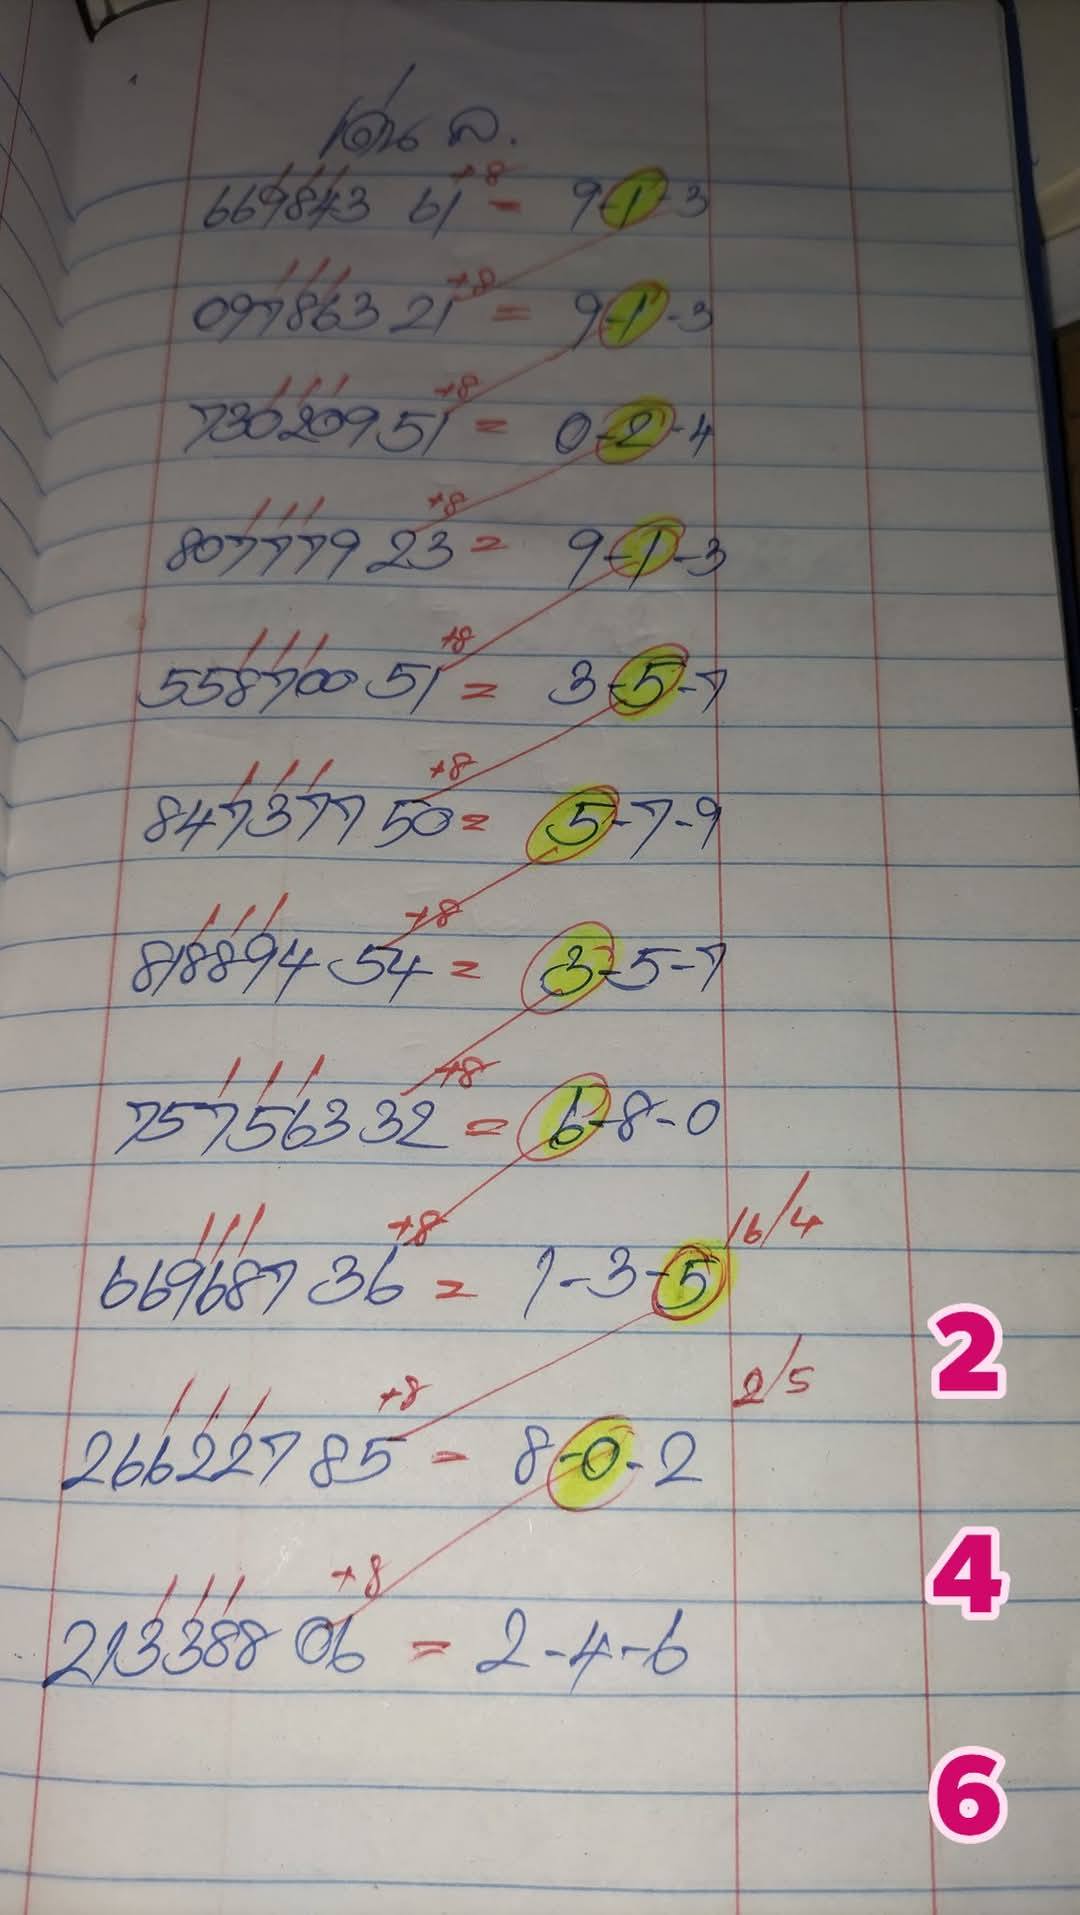 เด่น ล.
669843 61 +8 = 9-1-3
097863 21 +8 = 9-1-3
730209 51 +8 = 0-2-4
807779 23 +8 = 9-1-3
558700 51 +8 = 3-5-7
847377 50 +8 = 5-7-9
818894 54 +8 = 3-5-7
757563 32 +8 = 6-8-0
16/4
669687 36 +8 = 1-3-5
2
2/5
266227 85 +8 = 8-0-2
4
213388 06 +8 = 2-4-6
6